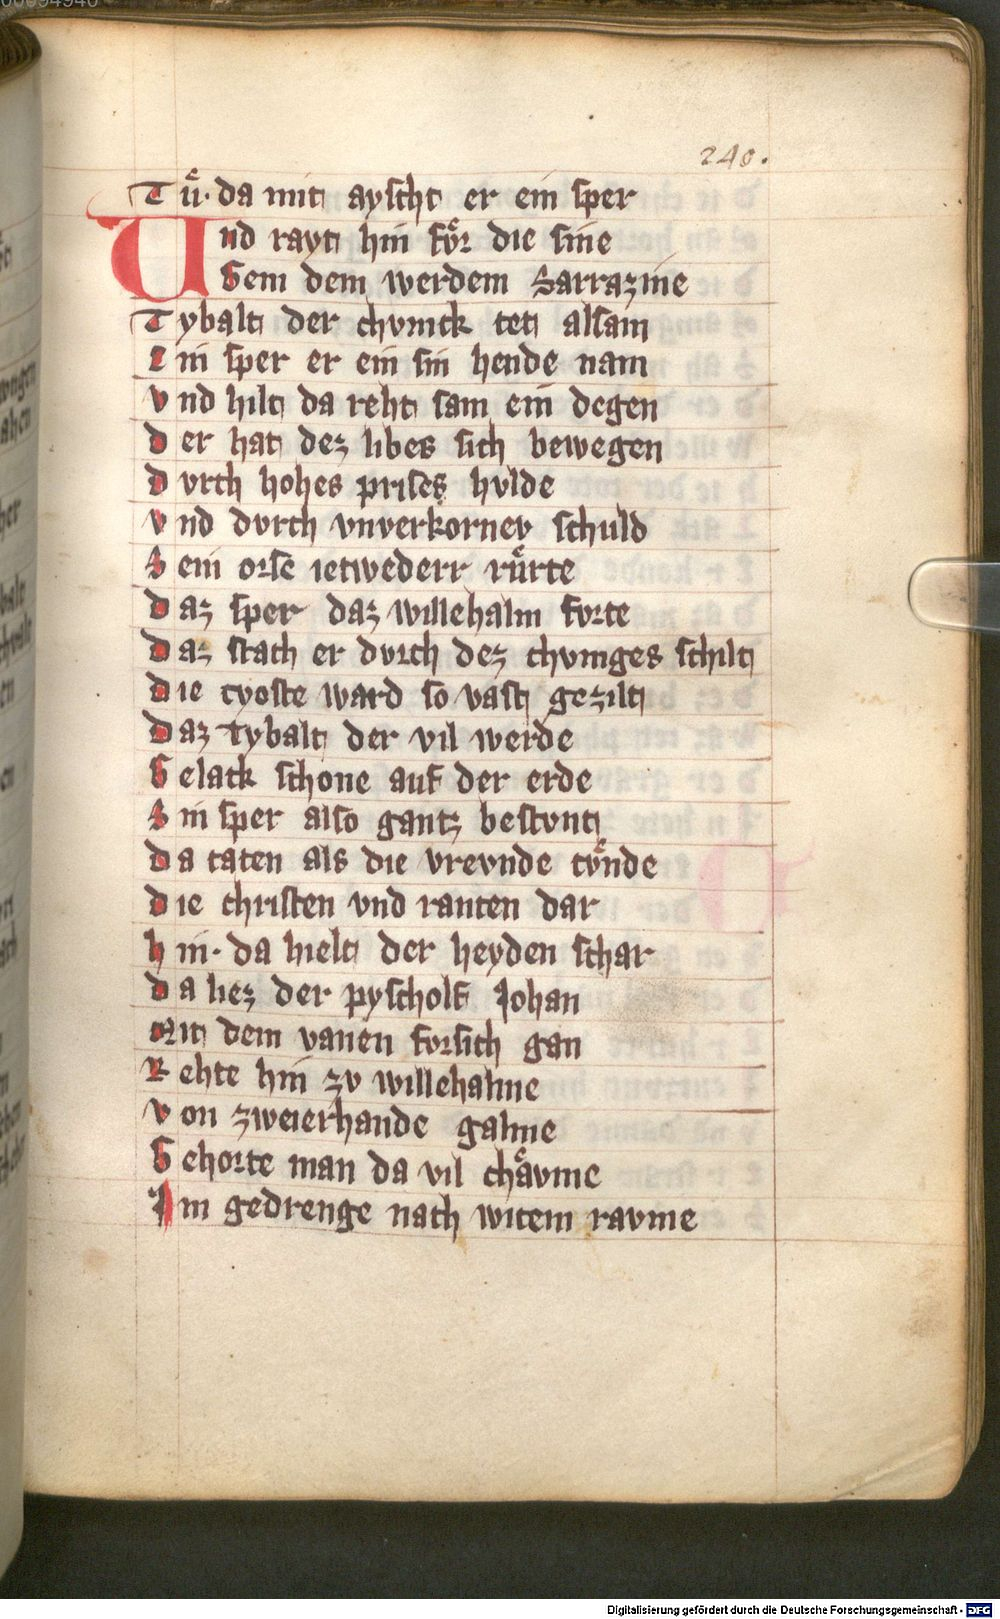 240.
Tuͤ· da mit ayscht er ein sper
Und rayt hin foͤr die sine
Gem dem werdem Sarrazine
Tybalt der chvnick tet alsam
Ein sper er ein sin hende nam
vnd hilt da reht sam ein degen
der hat dez libes sich bewegen
dvrch hohes prises hvlde
vnd dvrch vnverkornev schuld
Sein orse ietwederr ruͤrte
daz sper daz willehalm forte
daz stach er dvrch dez chvniges schilt
die tyoste ward so vast gezilt
daz tybalt der vil werde
Gelack schone auf der erde
Sin sper also gantz bestvnt
da taten als die vrevnde toͤnde
die christen vnd ranten dar
hin· da hielt der heyden schar
da liez der pyscholf Johan
Mit dem vanen forsich gan
Rehte hin zv willehalme
von zweierhande galme
Gehorte man da vil chaͤvme
Im gedrenge nach witem ravme
Digitalisierung gefördert durch die Deutsche Forschungsgemeinschaft - DFG